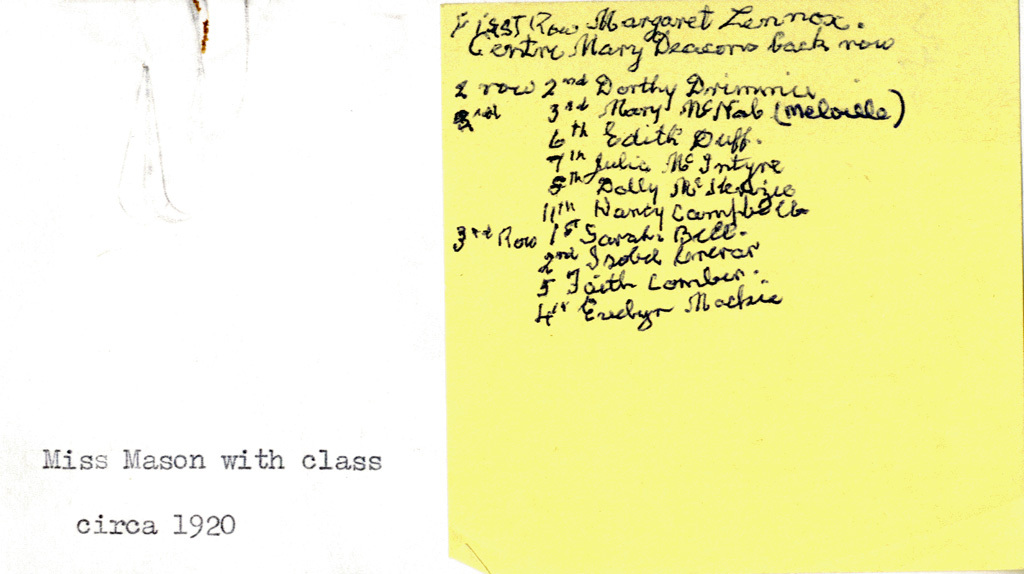 Miss Mason with class
circa 1920
First Row Margaret Lennox.
Centre Mary Deacons back row
2 row 2nd Dorthy Drimmie
3rd Mary McNab (Melville)
6th Edith Duff.
7th Julia McIntyre
8th Dolly McKenzie
11th Nancy Campbell
3rd Row 1st Sarah Bell.
2nd Isobel
5 Faith Comber.
4th Evelyn Mackie